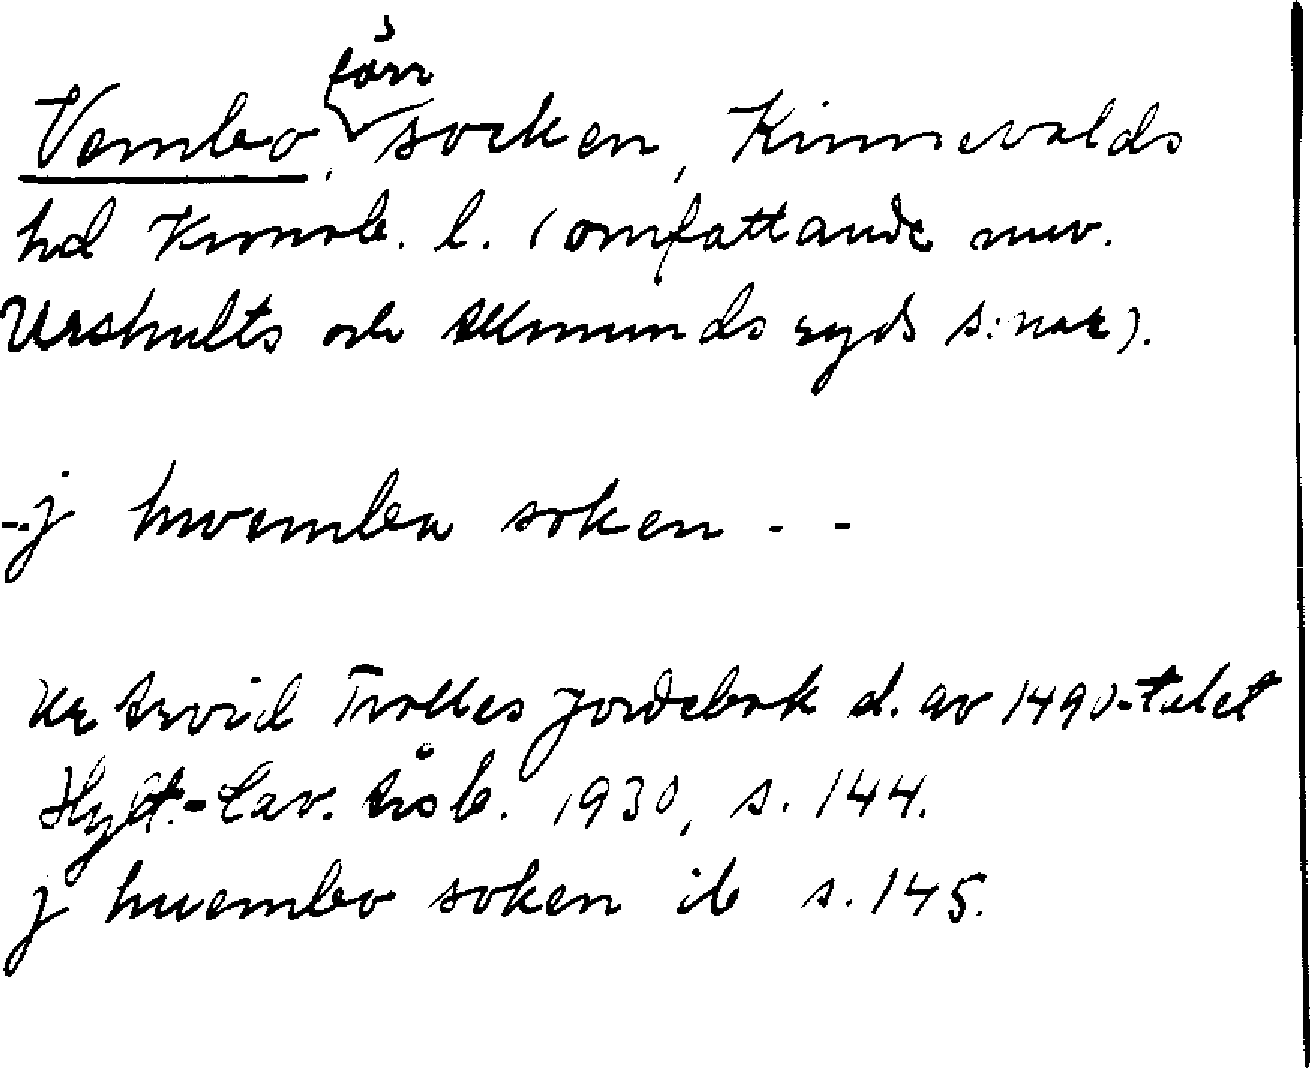 förr
Vembo, socken, Kinnevalds
hd Kronob. l. (omfattande nuv.
Urshults och Almundsryds s:nar).
--j hwembo soken - -
Ur Arvid Trolles jordebok d. av 1490-talet
Hylt.-Cav. Årsb. 1930, s. 144.
j huembo soken ib s. 145.